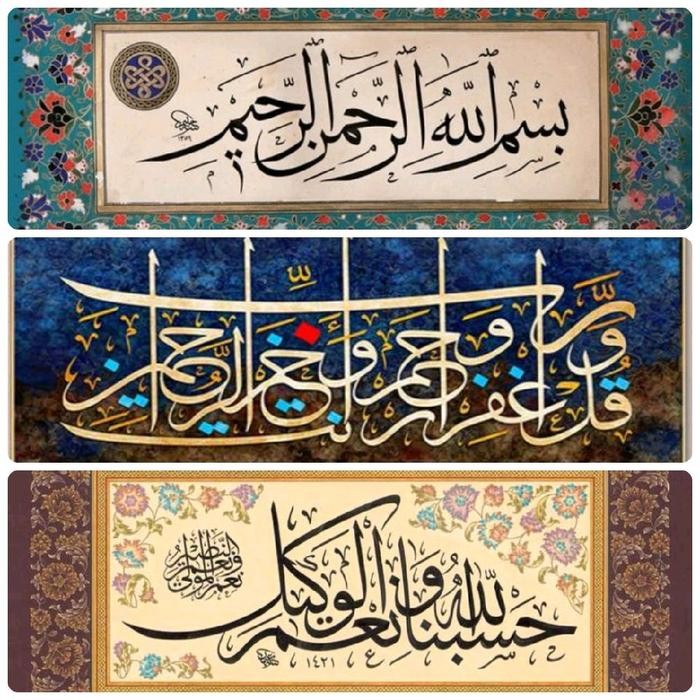 بِسْمِ اللَّهِ الرَّحْمٰنِ الرَّحِيمِ
وَقُل رَّبِّ اغْفِرْ وَارْحَمْ وَأَنتَ خَيْرُ الرَّاحِمِينَ
حَسْبُنَا اللَّهُ وَنِعْمَ الْوَكِيلُ
نِعْمَ الْمَوْلَى وَنِعْمَ النَّصِيرُ
١٤٢١